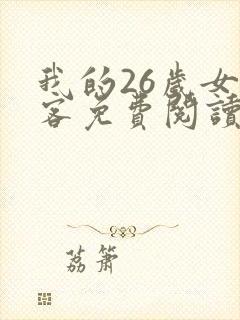 我的26歲女
客免費閱讀
荔簫